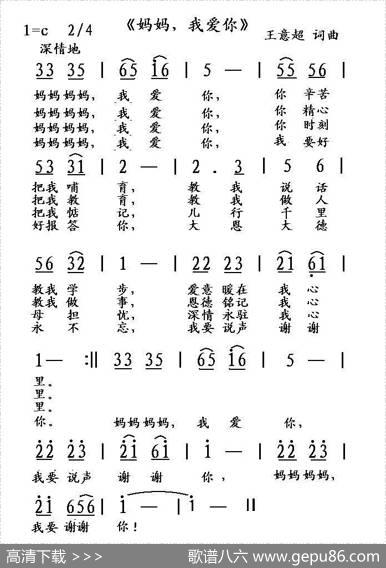 《妈妈，我爱你》
1=c 2/4
王意超 词曲
深情地
33 35 | 65 i6 | 5 — | 55 56 |
妈妈妈妈，我 爱 你，你 辛苦
妈妈妈妈，我 爱 你，你 精心
妈妈妈妈，我 爱 你，你 时刻
妈妈妈妈，我 爱 你，我 要好
53 31 | 2 — | 2 . 3 | 5 6 |
把我 哺 育，教 我 说 话
把我 教 育，教 我 做 人
把我 惦 记，儿 行 千 里
好报 答 你，大 恩 大 德
56 32 | 1 — | 22 23 | 21 61 |
教我 学 步，爱意 暖在 我 心
教我 做 事，恩德 铭记 我 心
母 担 忧，深情 永驻 我 心
永 不 忘，我要 说声 谢 谢
1 — :‖ 33 35 | 65 i6 | 5 — |
里。
里。
里。
你。 妈妈妈妈，我 爱 你，
22 23 | 21 61 | i — | 22 23 |
我要 说声 谢 谢 你，妈妈妈妈，
21 656 | i — | i — ‖
我要 谢谢 你！
高清下载 >>>
歌谱八六 www.gepu86.com